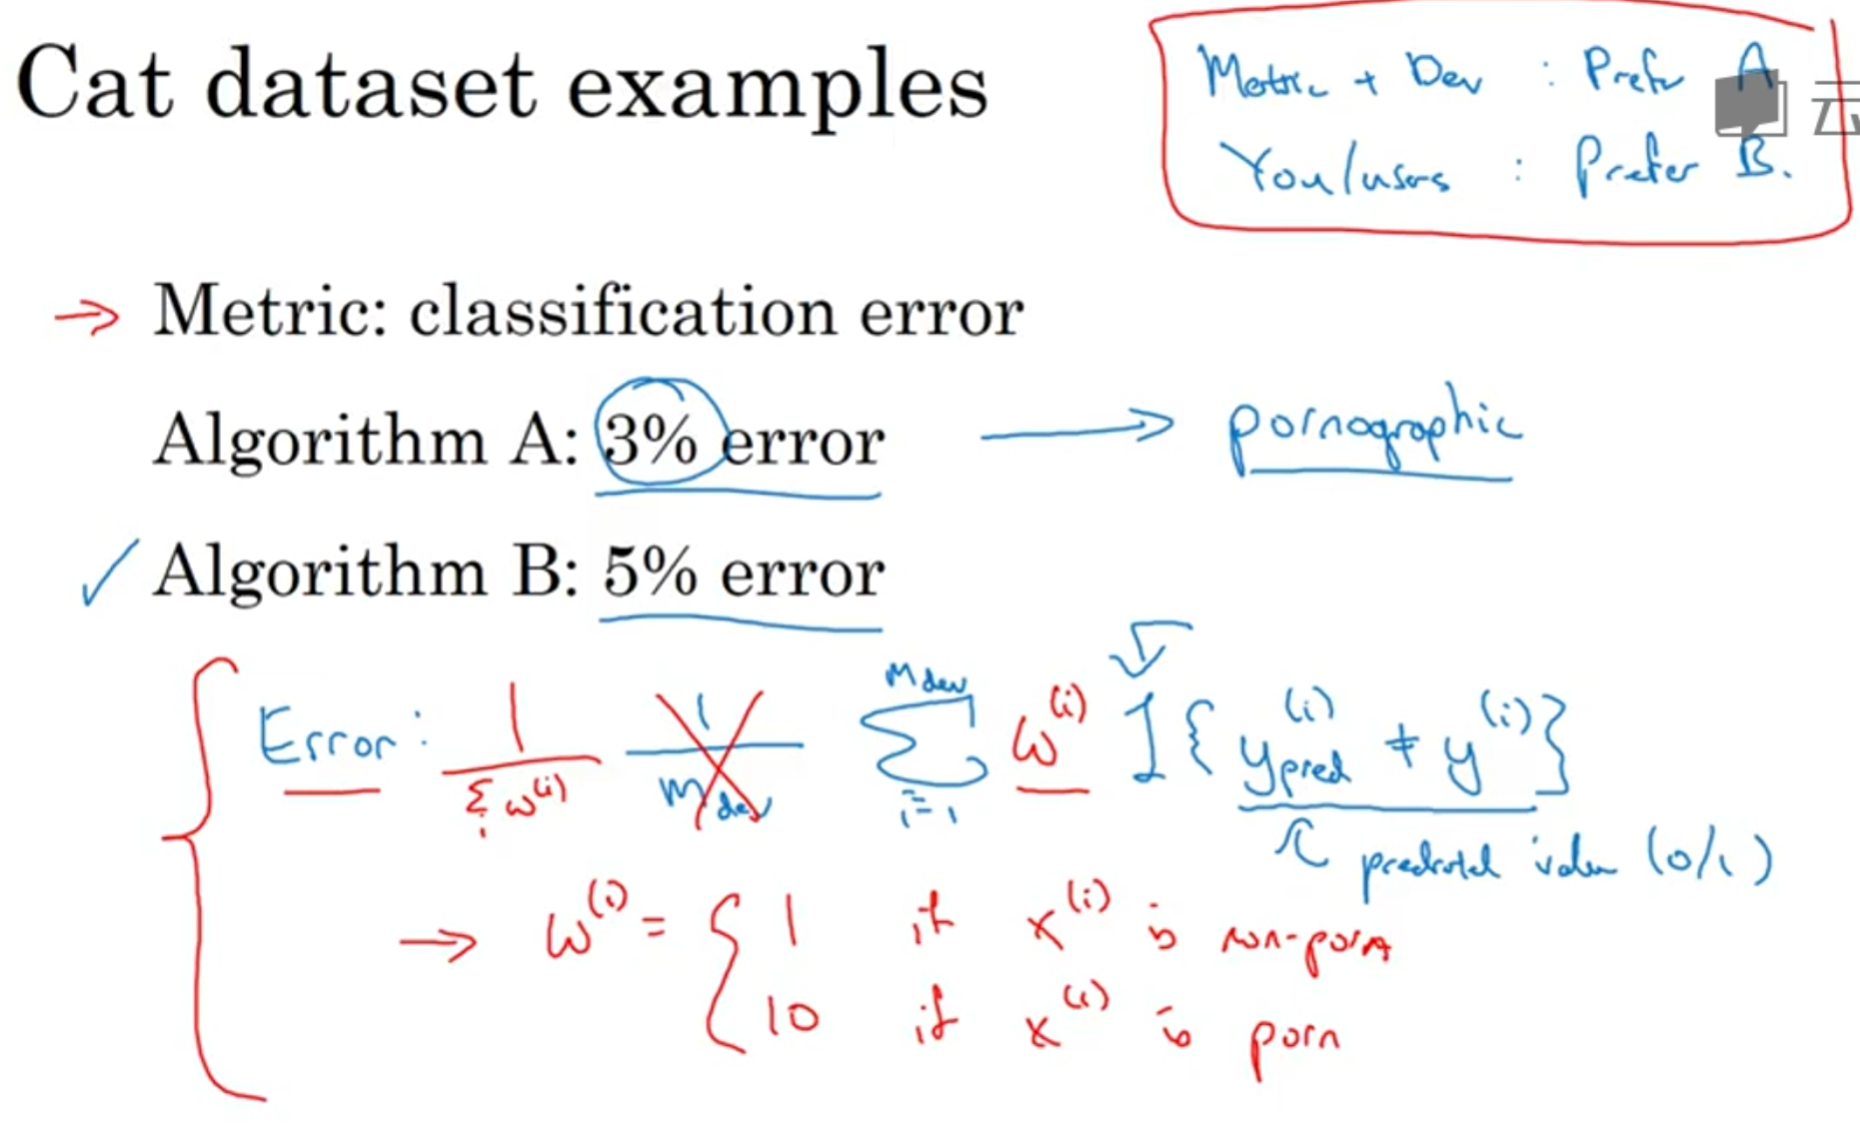 Cat dataset examples
Metric + Dev : Prefer A
You/users : Prefer B.
云
→ Metric: classification error
Algorithm A: 3% error → pornographic
✓ Algorithm B: 5% error
Error: 1/Σᵢ w⁽ⁱ⁾ 1/m_dev Σ_{i=1}^{m_dev} w⁽ⁱ⁾ I{y_pred⁽ⁱ⁾ ≠ y⁽ⁱ⁾}
predicted value (0/1)
→ w⁽ⁱ⁾ = { 1 if x⁽ⁱ⁾ is non-porn
10 if x⁽ⁱ⁾ is porn